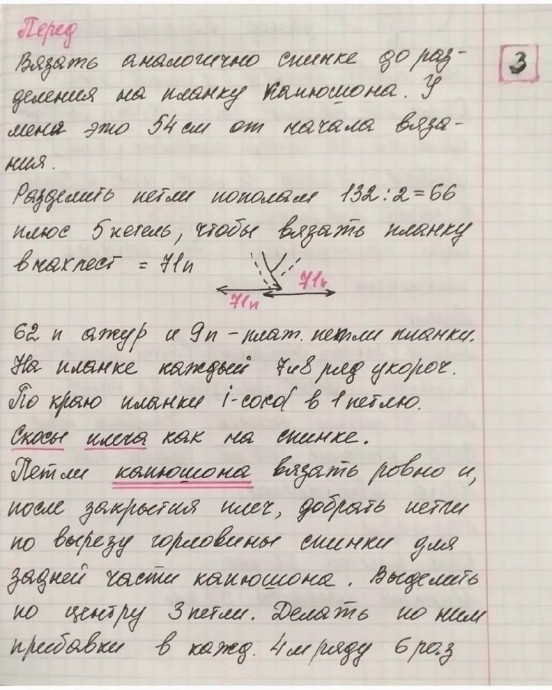 Перед
3
Вязать аналогично спинке до раз-
деления на планку капюшона. У
меня это 54 см от начала вяза-
ния.
Разделить петли пополам 132:2=66
плюс 5 петель, чтобы вязать планку
внахлест = 71п
71п
71п
62 п ажур и 9п - плат. петли планки.
На планке каждый 7и8 ряд укороч.
По краю планки i-cord в 1 петлю.
Скосы плеча как на спинке.
Петли капюшона вязать ровно и,
после закрытия плеч, добрать петли
по вырезу горловины спинки для
задней части капюшона. Выделить
по центру 3 петли. Делать по ним
прибавки в кажд. 4м ряду 6 раз